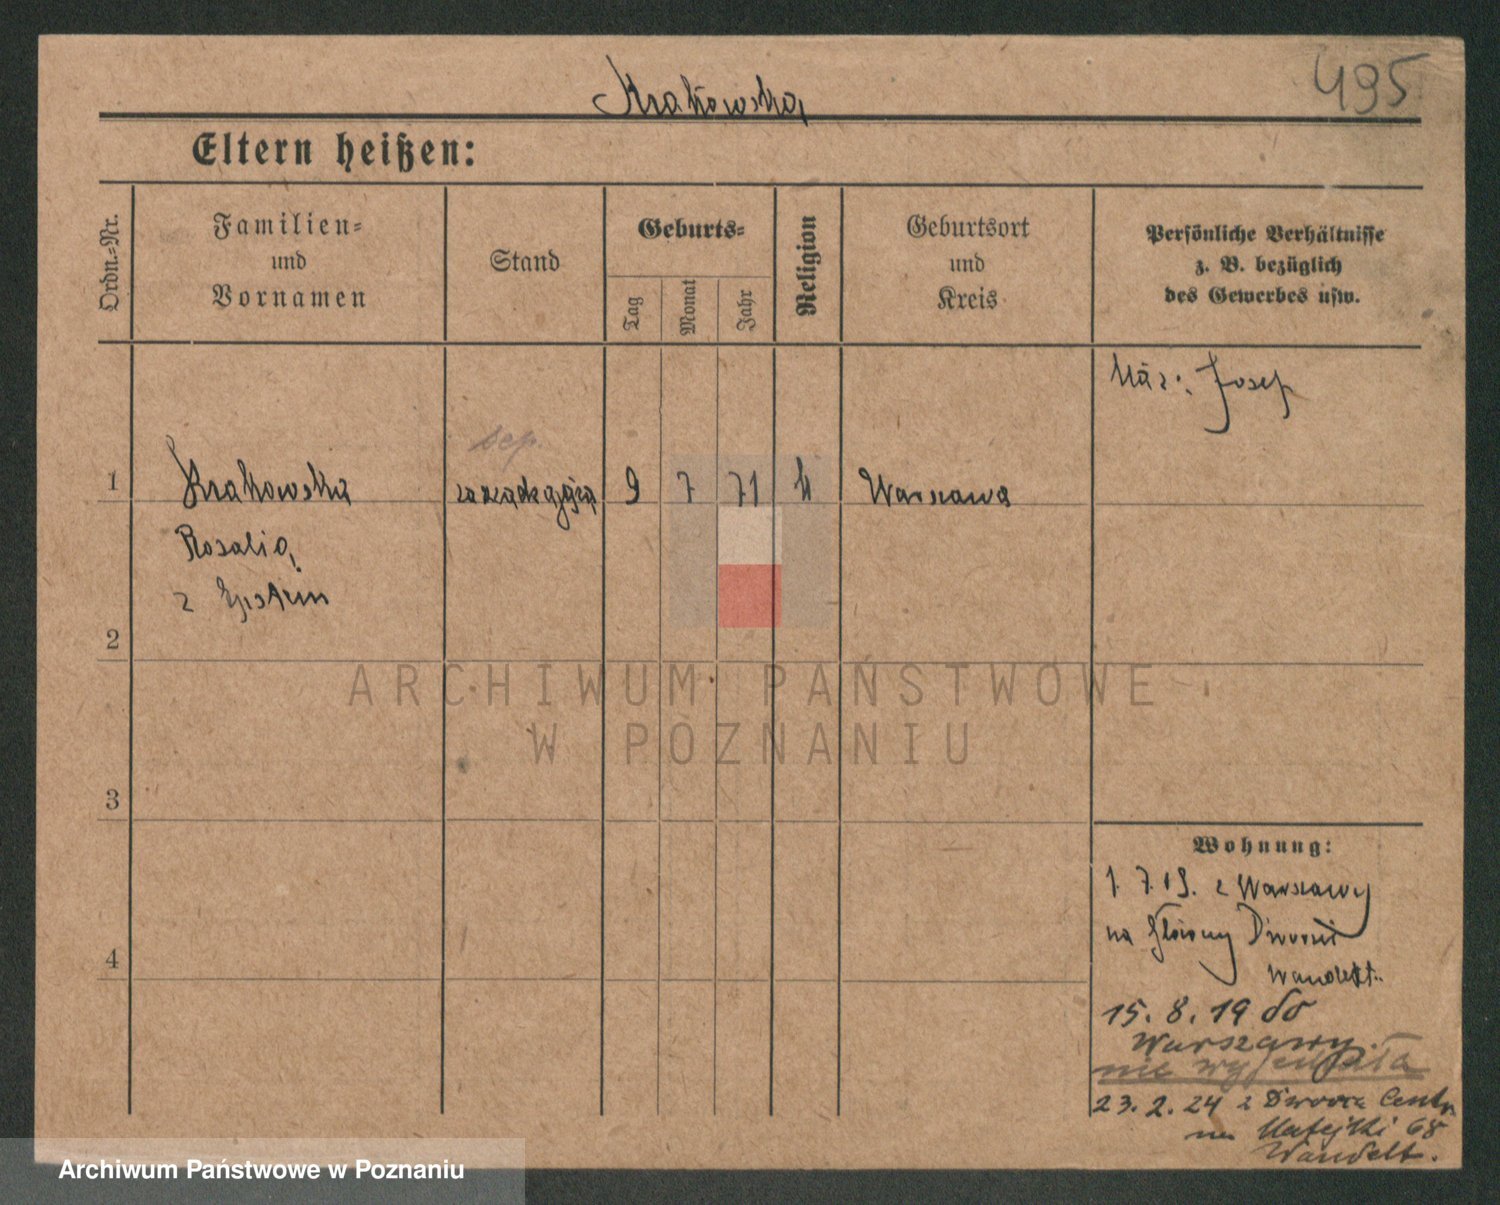 495
Krakowska
Eltern heißen:
Ordn.-Nr.
Familien-
und
Vornamen
Stand
Geburts-
Tag
Monat
Jahr
Religion
Geburtsort
und
Kreis
Persönliche Verhältnisse
z. B. bezüglich
des Gewerbes usw.
Mąż: Josef
sep.
1 Krakowska 9 7 71 Warszawa
Rosalia,
z Epstein
2
3
4
ARCHIWUM PAŃSTWOWE
W POZNANIU
Wohnung:
1.7.19. z Warszawy
na Główny Dworzec
Wandelt.
15. 8. 19 do
Warszawy.
nie wyjechała
23. 2. 24 z Dworca Centr.
na Matejki 68
Wandelt.
Archiwum Państwowe w Poznaniu